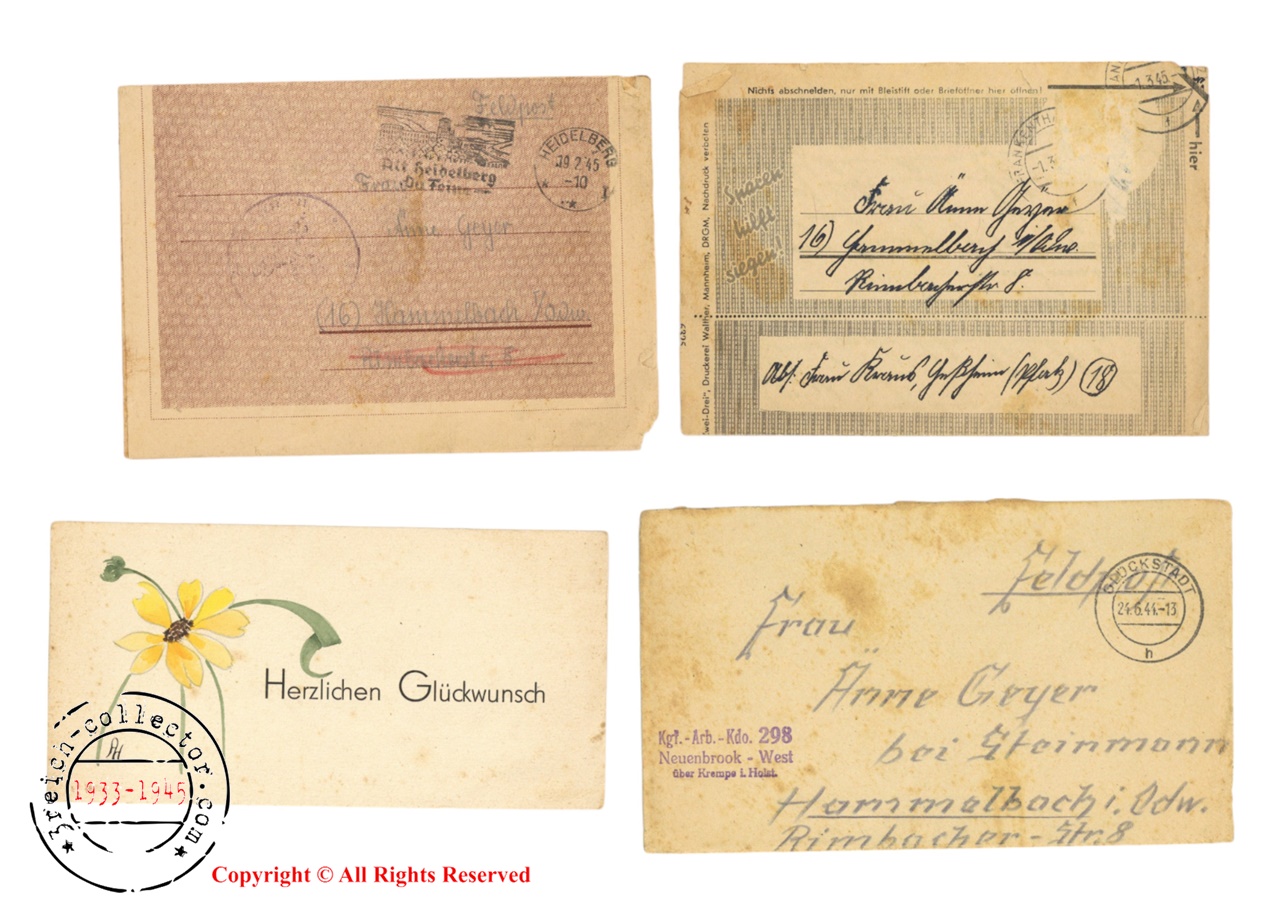 Feldpost
Alt Heidelberg
Du Feine
HEIDELBERG
19.2.45
-10
Frau
Änne Geyer
(16) Hammelbach i/Odw.
Rimbacherstr. 8
Nichts abschneiden, nur mit Bleistift oder Brieföffner hier öffnen!
1.3.45
hier
Sparen
hilft
siegen!
Druckerei Walther, Mannheim, DRGM, Nachdruck verboten
FRANKENTHA
-1.3
Frau Änne Geyer
16) Hammelbach i/Odw.
Rimbacherstr. 8.
Abs. Frau Kraus, (Pfalz) (18)
Herzlichen Glückwunsch
3reich-collector.com
1933-1945
Copyright © All Rights Reserved
Feldpost
GLÜCKSTADT
24.6.44.-13
h
Frau
Änne Geyer
bei Steinmann
Hammelbach i. Odw.
Rimbacher-Str. 8
Kgf.-Arb.-Kdo. 298
Neuenbrook - West
über Krempe i. Holst.